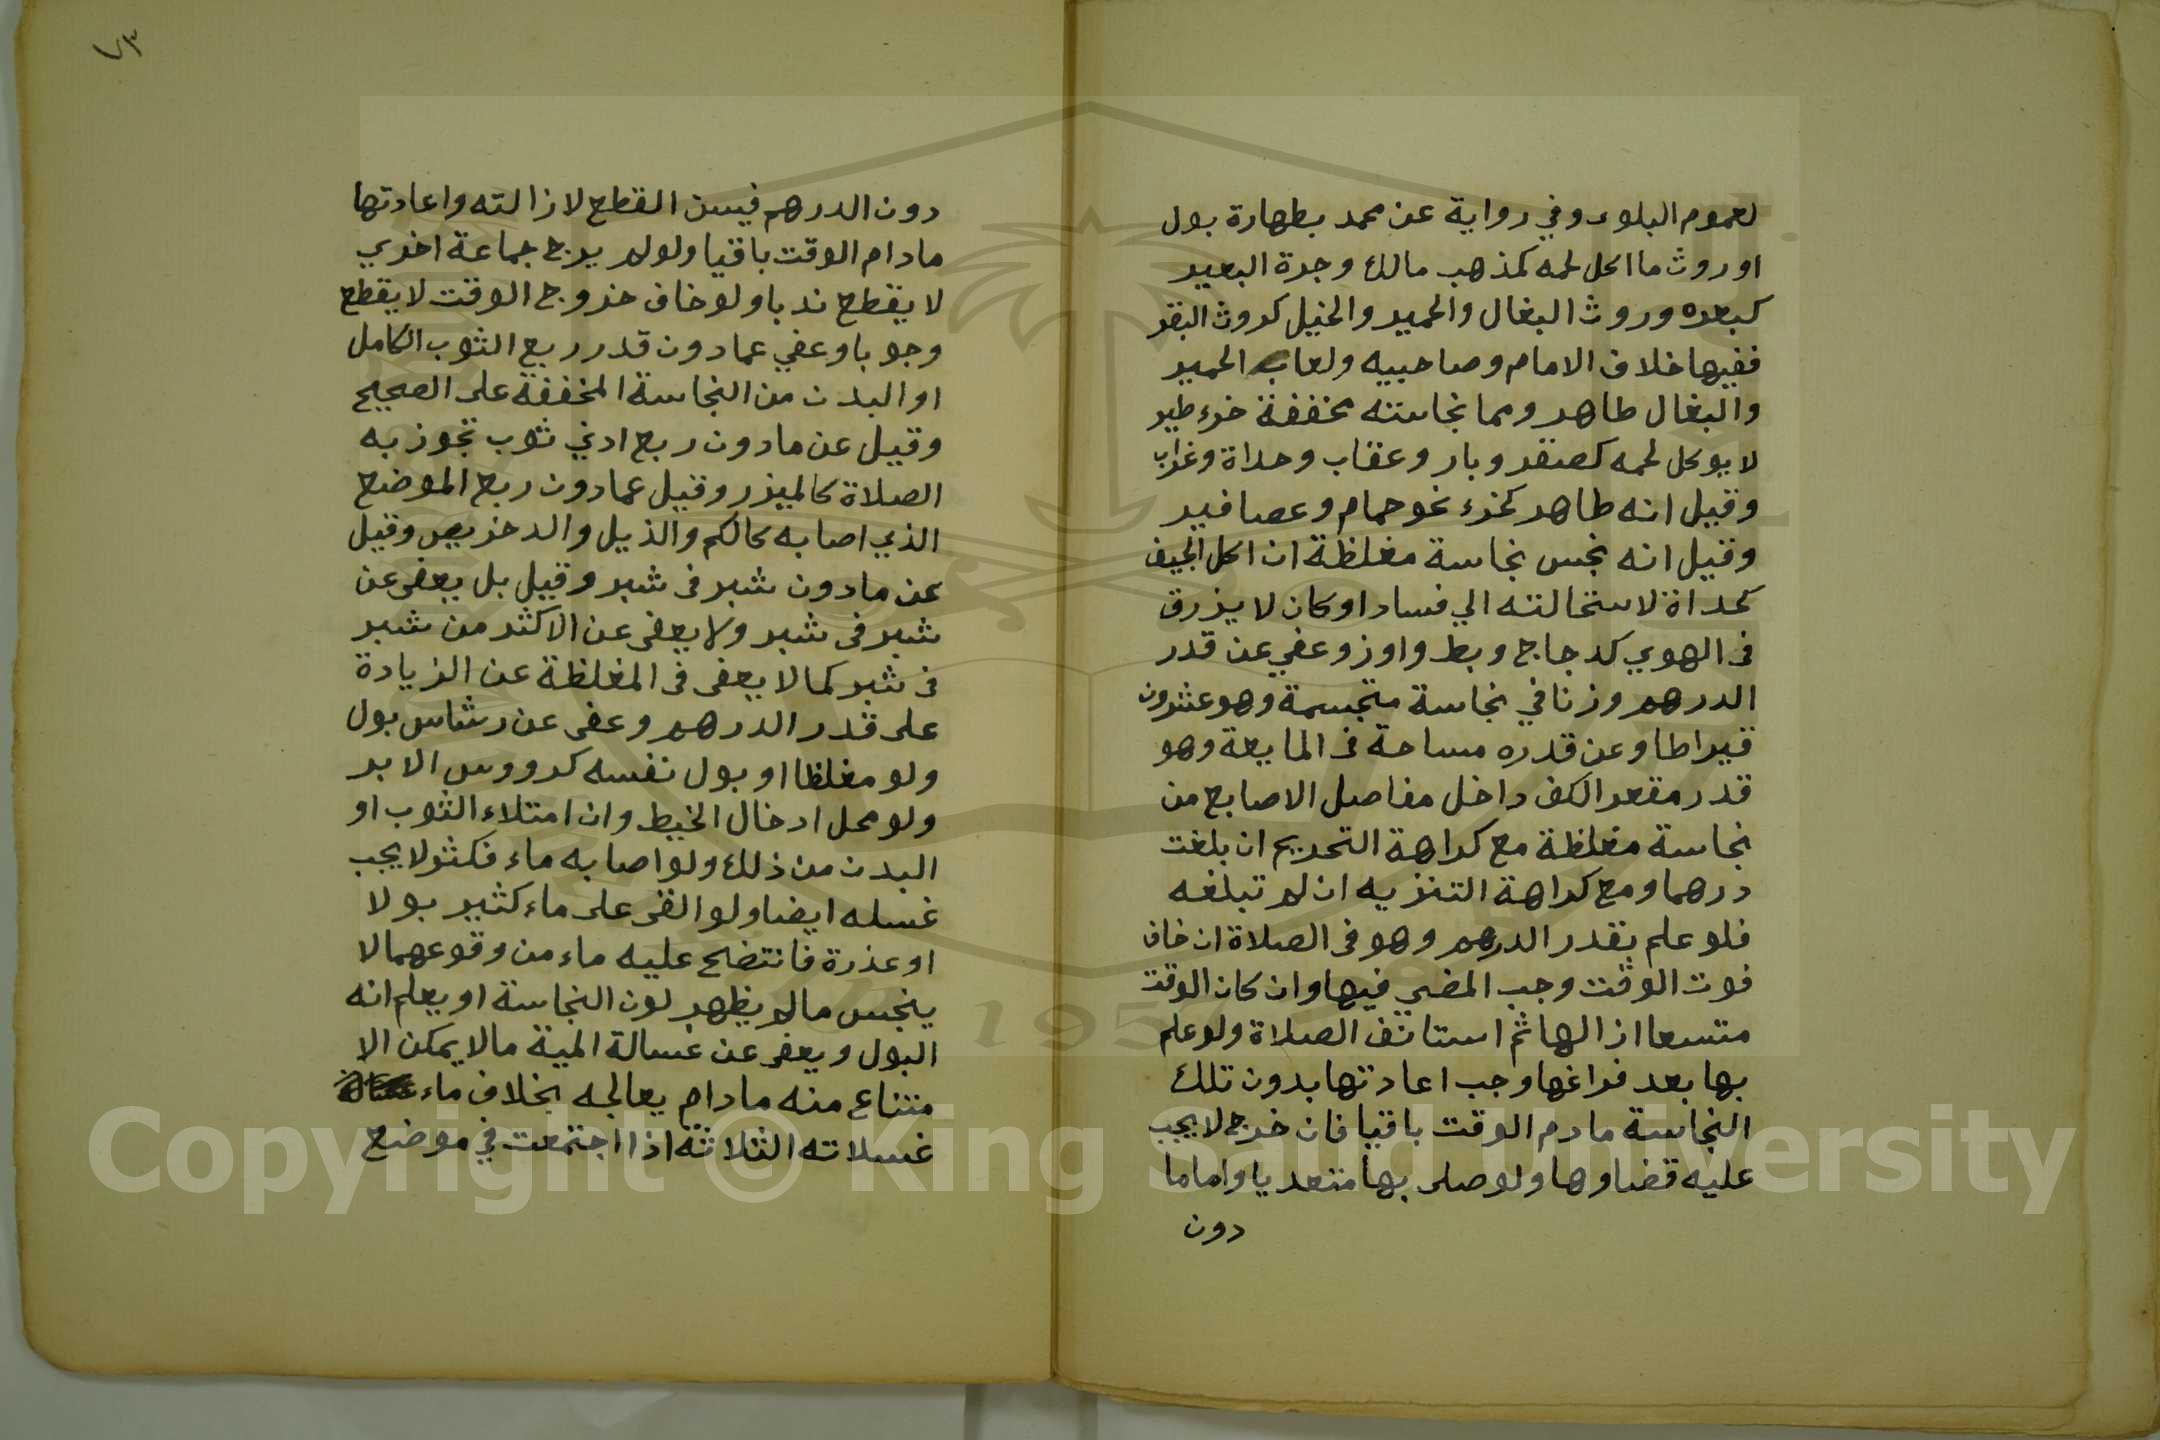 لعموم البلوى وفي رواية عن محمد بطهارة بول
او روث ما اكل لحمه كمذهب مالك وجرة البعير
كبعره وروث البغال والحمير والخيل كروث البقر
ففيها خلاف الامام وصاحبيه ولعاب الحمير
والبغال طاهر ومما نجاسته مخففة خرء طير
لا يوكل لحمه كصقر وباز وعقاب وحداة وغراب
وقيل انه طاهر كخرء نحو حمام وعصافير
وقيل انه نجس نجاسة مغلظة ان اكل الجيف
كحداة لاستحالته الي فساد او كان لا يزرق
فى الهوي كدجاج وبط واوز وعفي عن قدر
الدرهم وزنا في نجاسة متجسمة وهو عشرون
قيراطا وعن قدره مساحة فى المايعة وهو
قدر مقعر الكف داخل مفاصل الاصابع من
نجاسة مغلظة مع كراهة التحريم ان بلغت
درهما ومع كراهة التنزيه ان لم تبلغه
فلو علم بقدر الدرهم وهو فى الصلاة ان خاف
فوت الوقت وجب المضي فيها وان كان الوقت
متسعا ازالها ثم استانف الصلاة ولو علم
بها بعد فراغها وجب اعادتها بدون تلك
النجاسة مادم الوقت باقيا فان خرج لا يجب
عليه قضاوها ولو صلى بها متعديا واماما
دون
٧٣
دون الدرهم فيسن القطع لازالته واعادتها
مادام الوقت باقيا ولو لم يرج جماعة اخري
لا يقطع ندبا ولو خاف خروج الوقت لا يقطع
وجوبا وعفي عما دون قدر ربع الثوب الكامل
او البدن من النجاسة المخففة على الصحيح
وقيل عن ما دون ربع ادني ثوب تجوز به
الصلاة كالميزر وقيل عما دون ربع الموضع
الذي اصابه كالكم والذيل والدخريص وقيل
عن ما دون شبر فى شبر وقيل بل يعفى عن
شبر فى شبر ولا يعفى عن الاكثر من شبر
فى شبر كما لا يعفى فى المغلظة عن الزيادة
على قدر الدرهم وعفى عن رشاس بول
ولو مغلظا او بول نفسه كرووس الابر
ولو محل ادخال الخيط وان امتلاء الثوب او
البدن من ذلك ولو اصابه ماء فكثر لا يجب
غسله ايضا ولو القى على ماء كثير بولا
او عذرة فانتضح عليه ماء من وقوعهما لا
ينجس ما لم يظهر لون النجاسة او يعلم انه
البول ويعفى عن غسالة الميتة مالا يمكن الا
متناع منه مادام يعالجه بخلاف ماء
غسلاته الثلاثة اذا اجتمعت في موضع
Copyright © King Saud University
1957